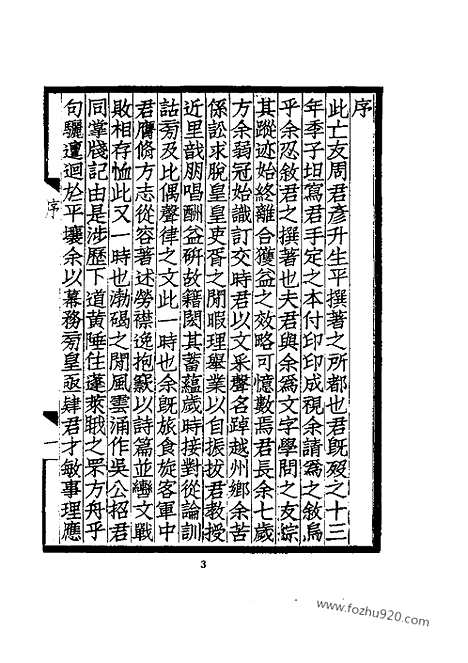 序
此亡友周君彥升生平撰著之所都也君旣歿之十三
年季子坦寫君手定之本付印印成視余請爲之敘烏
乎余忍敘君之撰著也夫君與余爲文字學問之友綜
其蹤迹始終離合獲益之效略可憶數焉君長余七歲
方余弱冠始識訂交時君以文采聲名踔越州鄉余苦
係訟求脫皇皇吏胥之閒暇理舉業以自振拔君敎授
近里戠朋唱酬益硏故籍閎其蓄蘊歲時接對從論訓
詁旁及比偶聲律之文此一時也余旣旅食旋客軍中
君膺脩方志從容著述勞襟逸抱竅以詩篇並轡文戰
敗相存恤此又一時也渤碣之閒風雲涌作吳公招君
同掌牋記由是涉歷下道黃陲住蓬萊睋之罘方舟乎
句驪邅迴於平壤余以幕務旁皇亟肆君才敏事理應
序
一
3
www.fozhu920.com